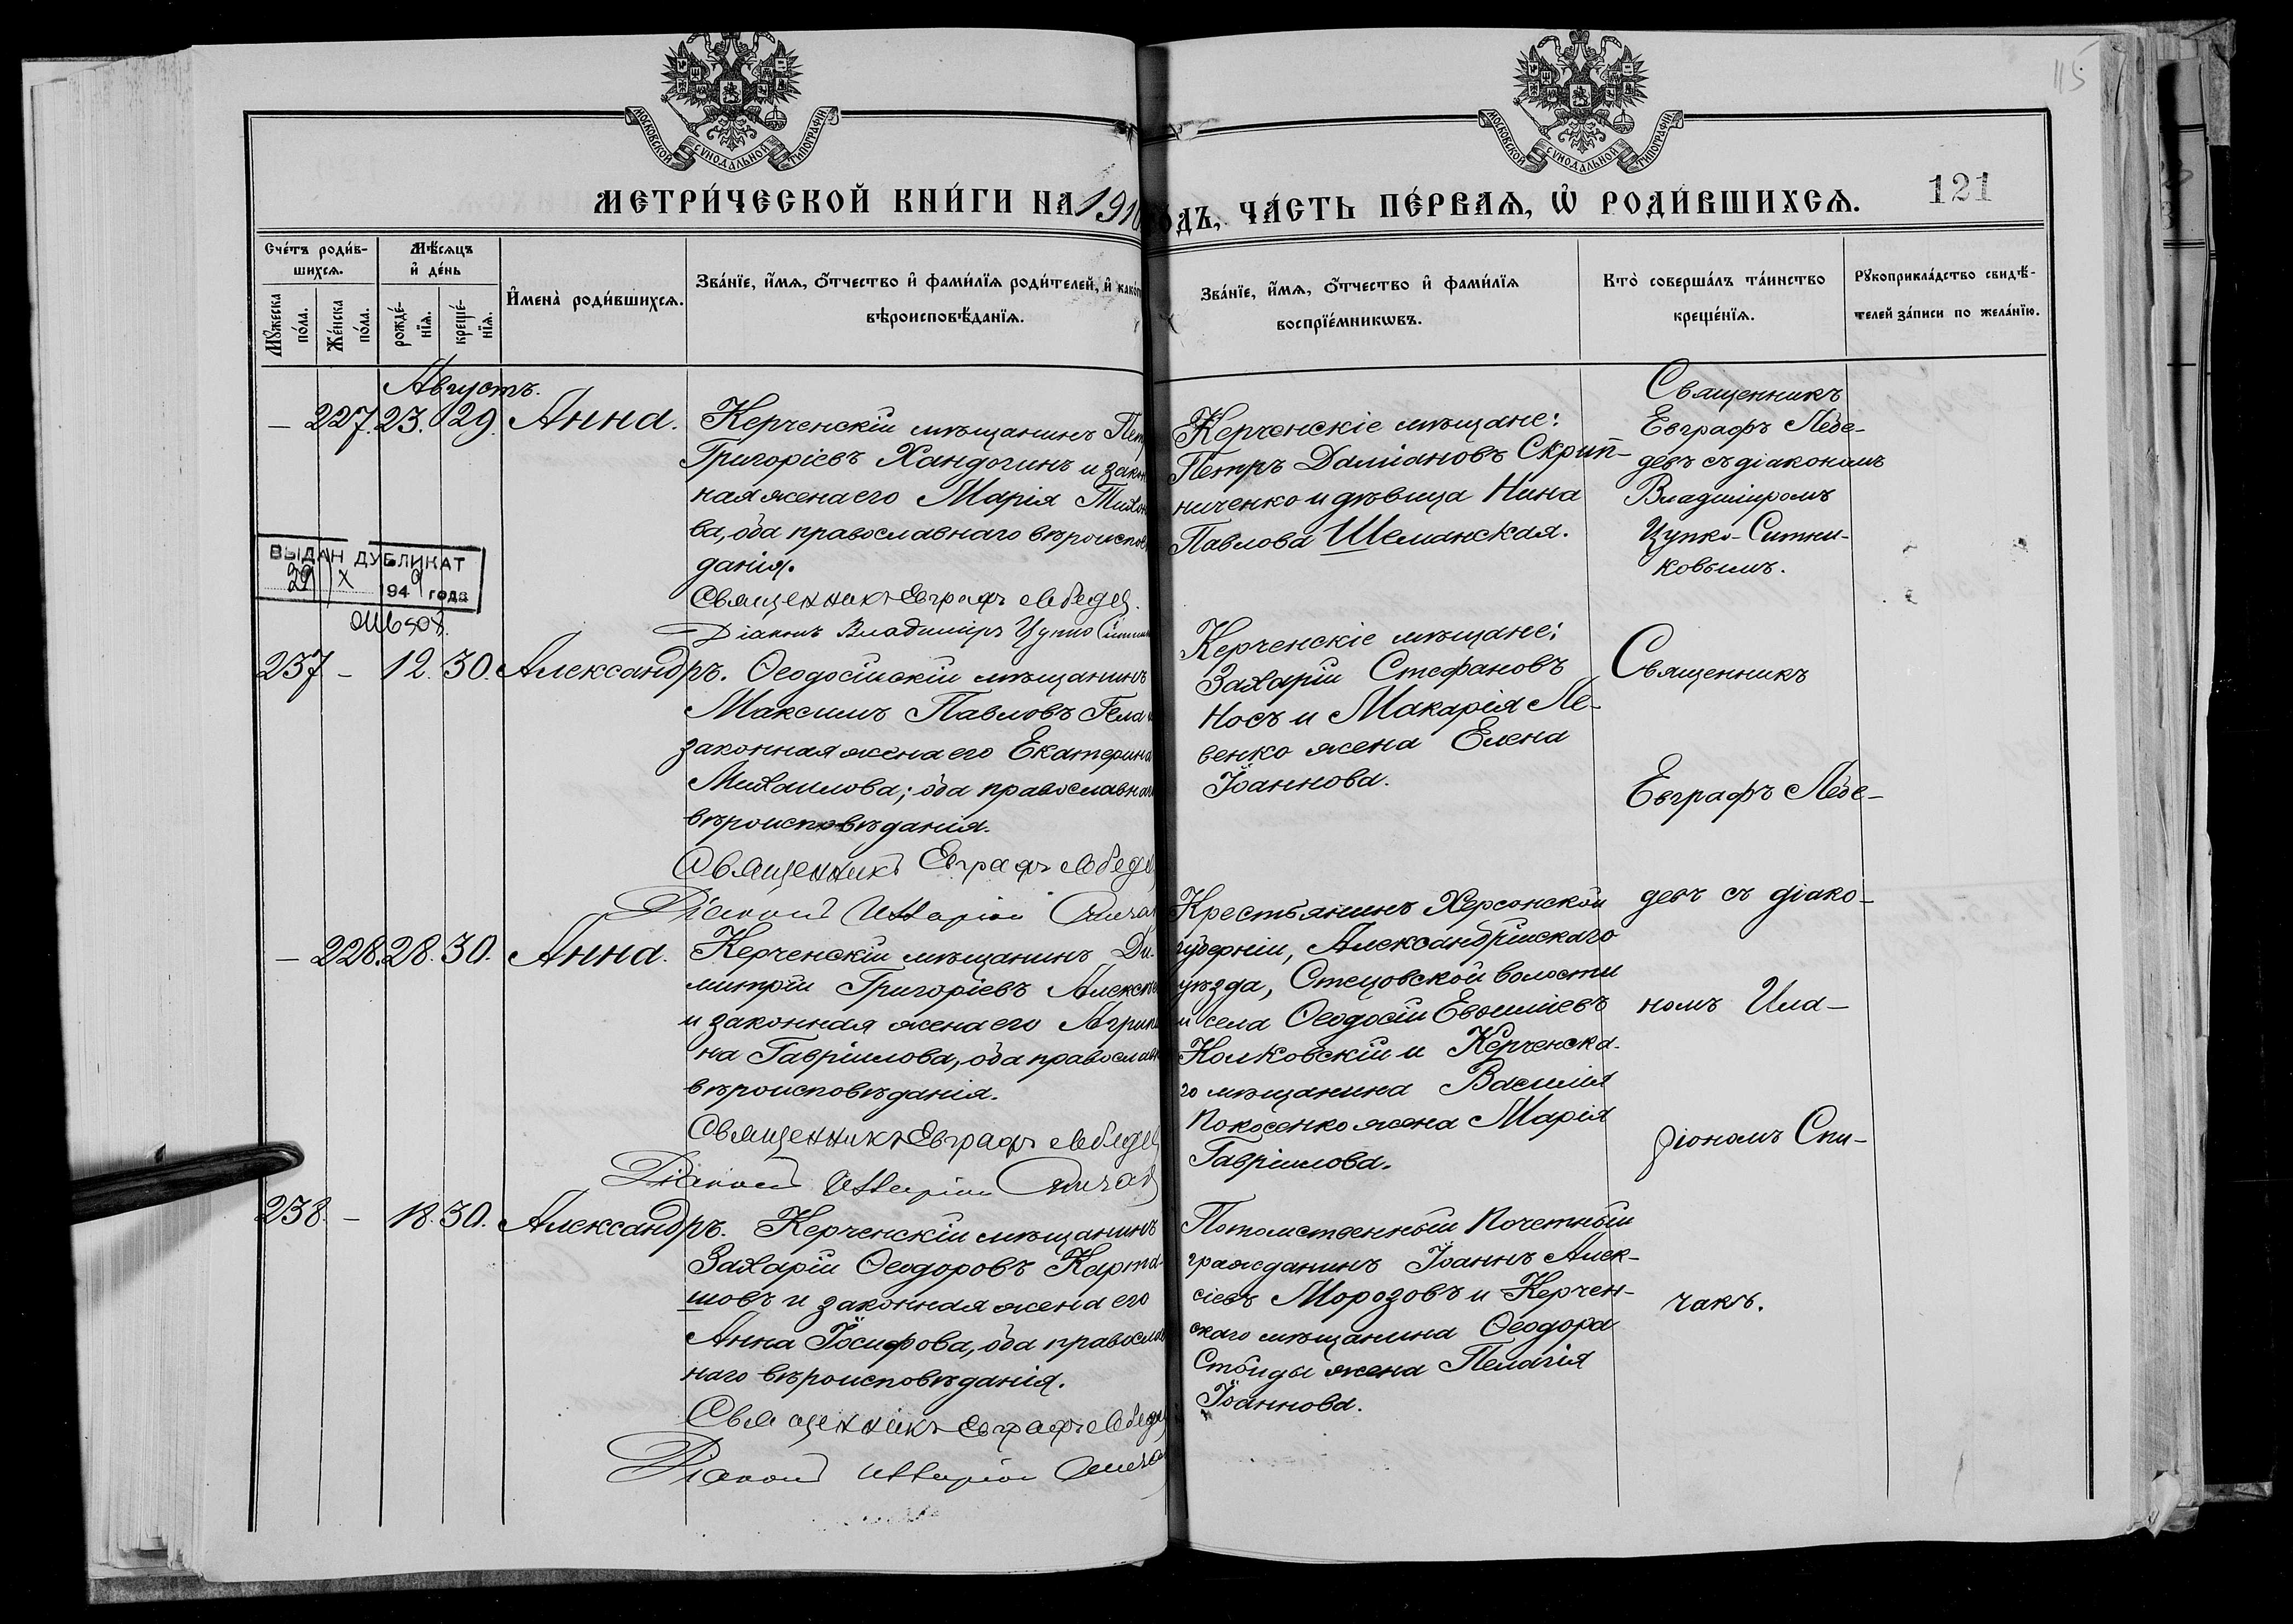 115
МОСКОВСКОЙ СѴНОДАЛЬНОЙ ТИПОГРАФІИ
МОСКОВСКОЙ СѴНОДАЛЬНОЙ ТИПОГРАФІИ
МЕТРИ́ЧЕСКОЙ КНИ́ГИ НА 1910
ОДЪ, ЧА́СТЬ ПЕ́РВАѦ, Ѡ҆ РОДИ́ВШИХСѦ.
121
Сче́тъ роди́в-
шихсѧ.
Мѣ́сѧцъ
и҆ де́нь
Мꙋ́жеска
по́ла.
Же́нска
по́ла.
рожде́-
нїѧ.
креще́-
нїѧ.
И҆мена̀ роди́вшихсѧ.
Зва́нїе, и҆́мѧ, ѻ҆́тчество и҆ фами́лїѧ роди́телей, и҆ како́г
вѣроисповѣ́данїѧ.
Зва́нїе, и҆́мѧ, ѻ҆́тчество и҆ фами́лїѧ
воспрїе́мникѡвъ.
Кто̀ соверша́лъ та́инство
креще́нїѧ.
Рꙋкоприкла́дство свидѣ́-
телей за́писи по жела́нїю.
Августъ.
— 227. 23. 29. Анна.
Керченскій мѣщанинъ Пет
Григоріевъ Хандогинъ и закон
ная жена его Марія Тихон
ва, оба православнаго вѣроиспов
данія.
Священникъ Евграфъ Лебедев
Діаконъ Владиміръ Цупко Ситник
Керченскіе мѣщане:
Петръ Даміановъ Скрип-
ниченко и дѣвица Нина
Павлова Шеманская.
Священникъ
Евграфъ Лебе-
девъ съ діакономъ
Владиміромъ
Цупко-Ситни-
ковымъ.
ВЫДАН ДУБЛИКАТ
29 X 1949 года
237 — 12. 30. Александръ.
Ѳеодосійскій мѣщанинъ
Максимъ Павловъ Гела
законная жена его Екатерина
Михаилова; оба православнаго
вѣроисповѣданія.
Священникъ Евграфъ Лебедев
Діаконъ Илларіон Спичак
Керченскіе мѣщане:
Захарій Стефановъ
Носъ и Макарія Ле-
венко жена Елена
Іоаннова.
Священникъ
Евграфъ Лебе-
девъ съ діако-
номъ Ила-
ріономъ Спи-
чакъ.
— 228. 28. 30. Анна.
Керченскій мѣщанинъ Ди-
митрій Григоріевъ Алексѣе
и законная жена его Агрип
на Гавріилова, оба православн
вѣроисповѣданія.
Священникъ Евграфъ Лебедев
Діаконъ Илларіон Спичак
Крестьянинъ Херсонской
губерніи, Александрійскаго
уѣзда, Стецовской волости
и села Ѳеодосій Евѳиміевъ
Колковскій и Керченска-
го мѣщанина Василія
Покосенко жена Марія
Гавріилова.
238. — 18. 30. Александръ.
Керченскій мѣщанинъ
Захарій Ѳеодоровъ Карта-
шовъ и законная жена его
Анна Іосифова, оба православ
наго вѣроисповѣданія.
Священникъ Евграфъ Лебедев
Діаконъ Илларіон Спичак
Потомственный почетный
гражданинъ Іоаннъ Алек-
сіевъ Морозовъ и Керчен-
скаго мѣщанина Ѳеодора
Стбиды жена Пелагія
Іоаннова.